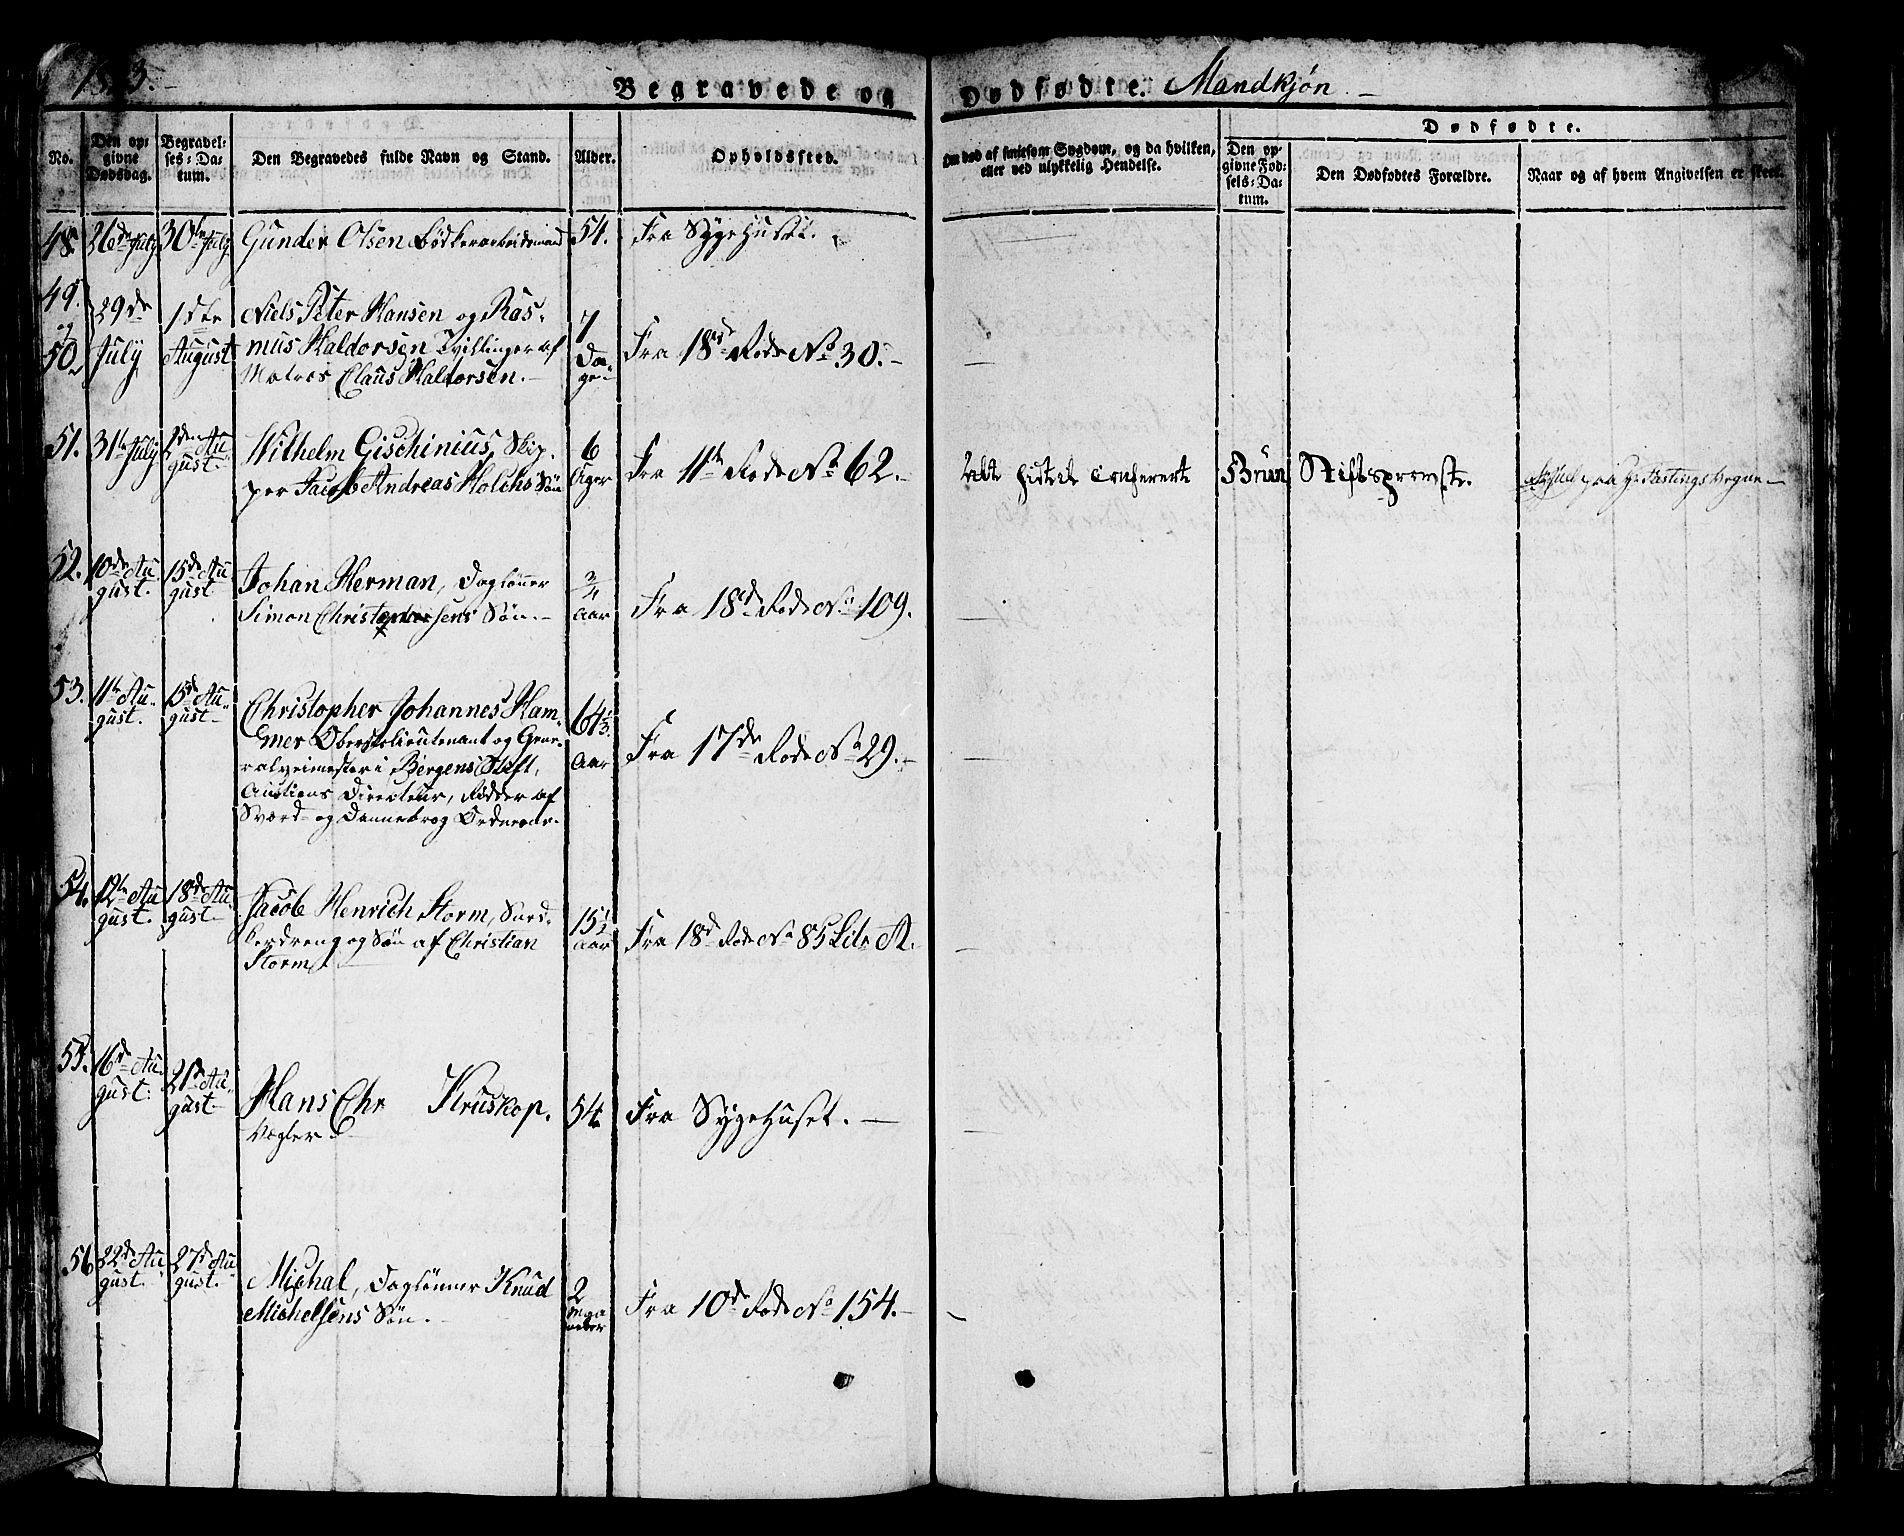 Begravede og Dødfødte. Mandkjøn.
No.
Den opgivne Dødsdag.
Begravelses-Datum.
Den Begravedes fulde Navn og Stand.
Alder.
Opholdssted.
Om død af smitsom Sygdom, og da hvilken,
eller ved ulykkelig Hendelse.
Dødfødte.
Den opgivne Fødsels-Datum.
Den Dødfødtes Forældre.
Naar og af hvem Angivelsen er skeet.
48. 26de July 30te July Gunder Olsen Bødkerarbeidsmand 54. Fra Sygehuset.
49. 29de 1ste Niels Peter Hansen og Ras-
og
50. July August mus Haldorsen Tvillinger af 7 Dage Fra 18de Rode No 30.
Matros Claus Haldorsen.
51. 31te July 2den August Wilhelm Gischinius, Skip- 6 Uger Fra 11te Rode No 62.
per Jacob Andreas Holchs Søn
Brun Stiftsprovst.
52. 10de August 15de August Johan Herman, Dagløner 3/4 Aar Fra 18de Rode No 109.
Simon Christophersens Søn.
53. 11te August 15de August Christopher Johannes Ham- 64 1/3 Aar Fra 17de Rode No 29.
mer Oberstelieutenant og Gene-
ralveimester i Bergens Stift,
Auctions Directeur, Ridder af
Sværd- og Dannebrog Ordnerne.
54. 12te August 18de August Jacob Henrich Storm, 15 1/2 Aar Fra 18de Rode No 85 Litr A.
og Søn af Christian
Storm
55. 16de August 21de August Hans Chr Kruskop. 54 Fra Sygehuset.
Vægter
56 22de August 27de August Michal, Daglønner Knud 2 Maaneder Fra 10de Rode No 154.
Michelsens Søn.